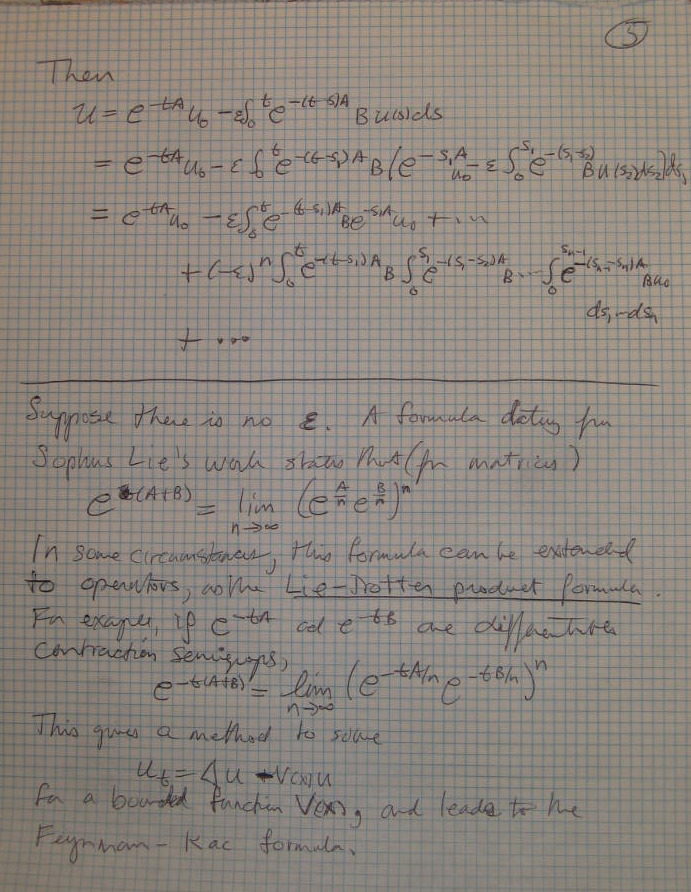 5
Then
u = e^{-tA} u_0 - ε∫_0^t e^{-(t-s)A} B u(s) ds
= e^{-tA} u_0 - ε ∫_0^t e^{-(t-s_1)A} B (e^{-s_1 A} u_0 - ε ∫_0^{s_1} e^{-(s_1-s_2)} B u(s_2) ds_2) ds_1
= e^{-tA} u_0 - ε∫_0^t e^{-(t-s_1)A} B e^{-s_1 A} u_0 + ...
+ (-ε)^n ∫_0^t e^{-(t-s_1)A} B ∫_0^{s_1} e^{-(s_1-s_2)A} B ... ∫_0^{s_{n-1}} e^{-(s_{n-1}-s_n)A} B u_0
ds_1 ... ds_n
+ ...
Suppose there is no ε. A formula dating from
Sophus Lie's work states that (for matrices)
e^{(A+B)} = lim_{n→∞} (e^{A/n} e^{B/n})^n
In some circumstances, this formula can be extended
to operators, as the Lie-Trotter product formula.
For example, if e^{-tA} and e^{-tB} are
contraction semigroups,
e^{-t(A+B)} = lim_{n→∞} (e^{-tA/n} e^{-tB/n})^n
This gives a method to solve
u_t = Δu - V(x)u
for a bounded function V(x), and leads to the
Feynman-Kac formula.